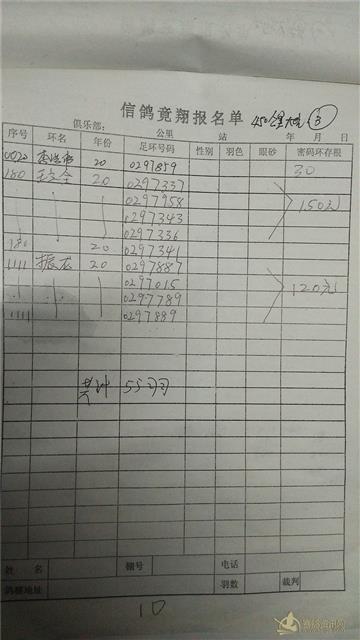 信鸽竞翔报名单 450公里大 ③
俱乐部: 公里 站 年 月 日
序号 环名 年份 足环号码 性别 羽色 眼砂 密码环存根
0020 20 0297859 30
180 20 0297337
0297958 150元
0297343
0297336
180 20 0297341
1111 振龙 20 0297887
0297015 120元
0297789
1111 0297889
共计 55
姓名 棚号 电话
鸽棚地址 羽数 裁判
10